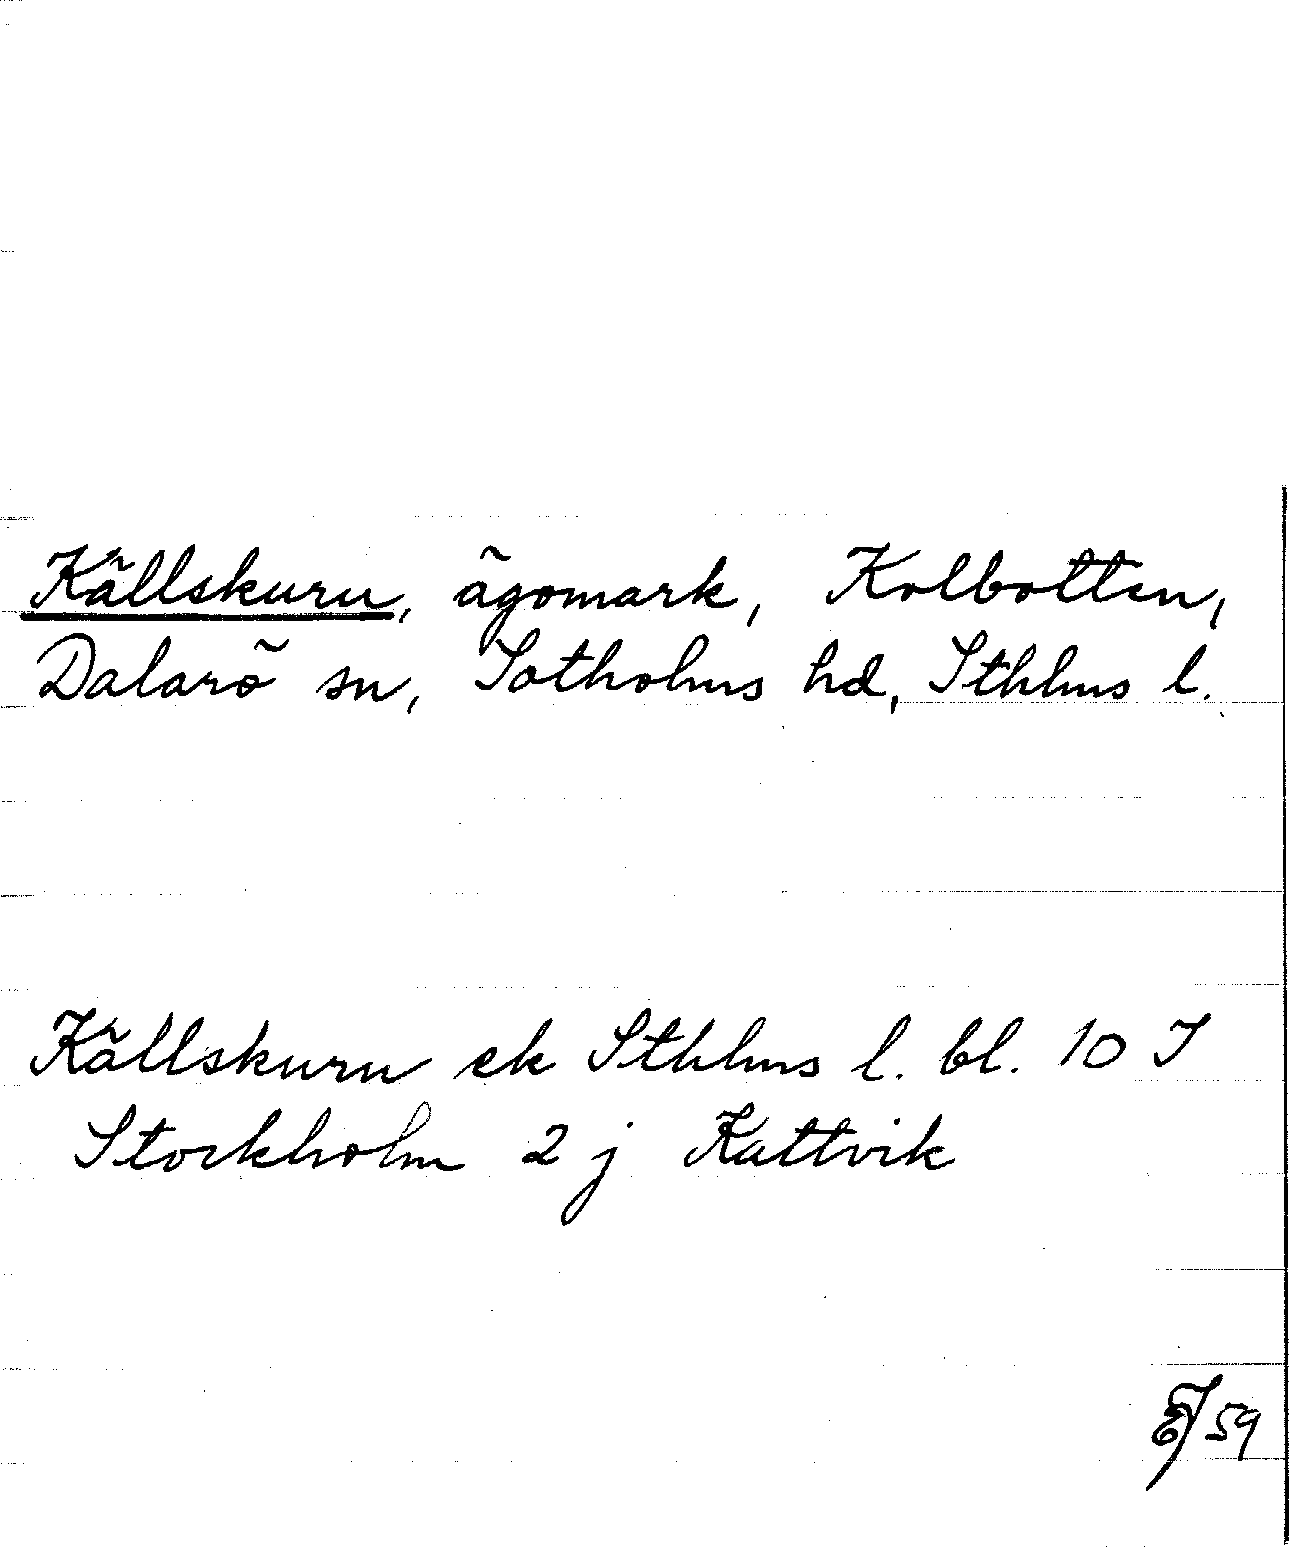 Källskuru, ägomark, Kolbotten,
Dalarö sn, Sotholms hd, Sthlms l.
Källskuru ek Sthlms l. bl. 10 I
Stockholm 2 j Kattvik
59